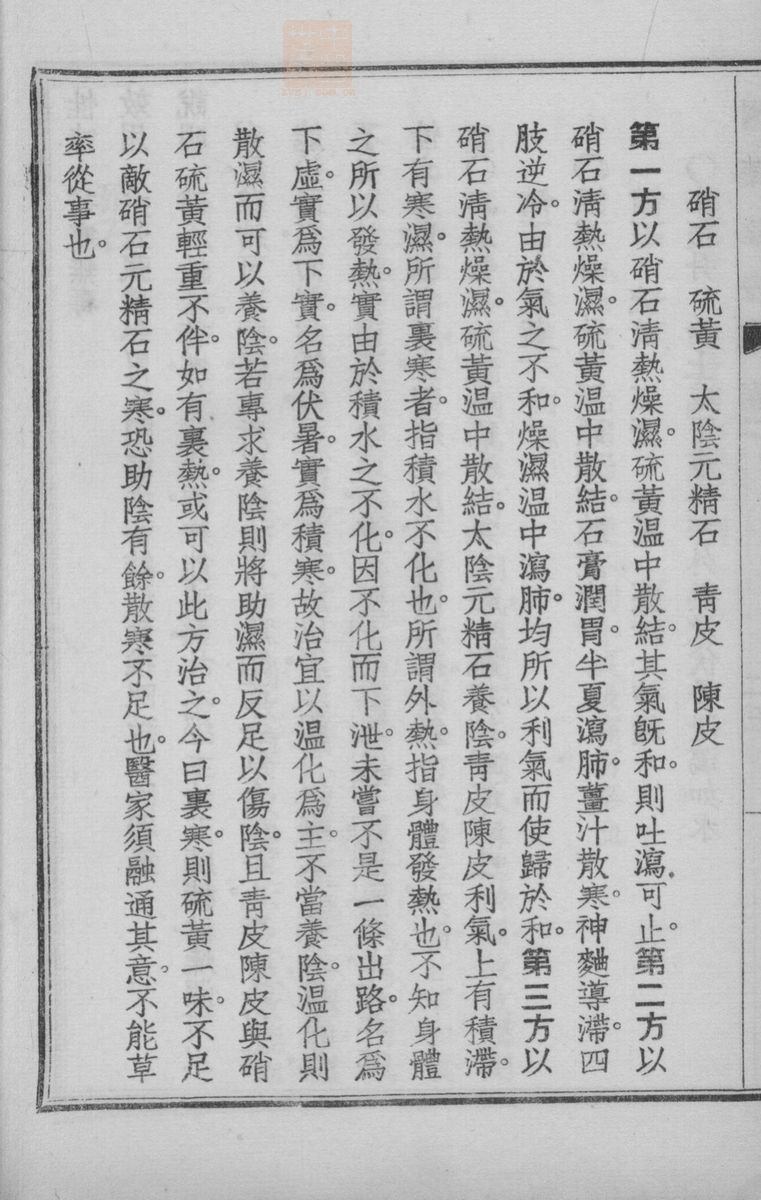 硝石　硫黃　太陰元精石　青皮　陳皮
第一方以硝石清熱燥濕。硫黃溫中散結。其氣旣和。則吐瀉可止。第二方以
硝石清熱燥濕。硫黃溫中散結。石膏潤胃。半夏瀉肺。薑汁散寒。神麯導滯。四
肢逆冷。由於氣之不和。燥濕溫中瀉肺。均所以利氣而使歸於和。第三方以
硝石清熱燥濕。硫黃溫中散結。太陰元精石養陰。靑皮陳皮利氣。上有積滯。
下有寒濕。所謂裏寒者。指積水不化也。所謂外熱。指身體發熱也。不知身體
之所以發熱。實由於積水之不化。因不化而下泄。未嘗不是一條出路。名爲
下虛。實爲下實。名爲伏暑。實爲積寒。故治宜以溫化爲主。不當養陰。溫化則
散濕而可以養陰。若專求養陰則將助濕而反足以傷陰。且靑皮陳皮與硝
石硫黃輕重不侔。如有裏熱。或可以此方治之。今曰裏寒。則硫黃一味。不足
以敵硝石元精石之寒。恐助陰有餘。散寒不足也。醫家須融通其意。不能草
率從事也。